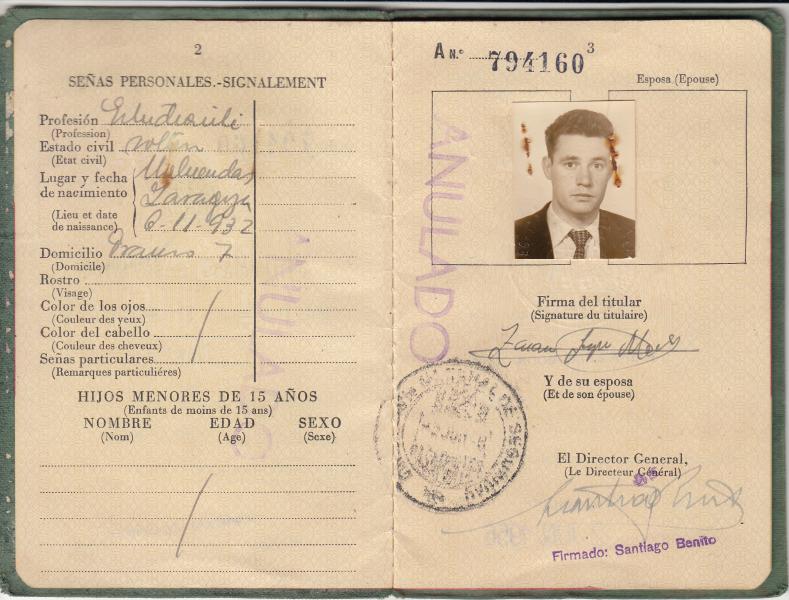 2
SEÑAS PERSONALES.-SIGNALEMENT
Profesión
(Profession)
Estado civil
(Etat civil)
Lugar y fecha
de nacimiento
(Lieu et date
de naissance)
Zaragoza
6-11-932
Domicilio 7
(Domicile)
Rostro
(Visage)
Color de los ojos
(Couleur des yeux)
Color del cabello
(Couleur des cheveux)
Señas particulares
(Remarques particuliéres)
HIJOS MENORES DE 15 AÑOS
(Enfants de moins de 15 ans)
NOMBRE EDAD SEXO
(Nom) (Age) (Sexe)
ANULADO
A N.º 794160 3
Esposa (Epouse)
ANULADO
Firma del titular
(Signature du titulaire)
Y de su esposa
(Et de son épouse)
DE SEGURIDAD
El Director General,
(Le Directeur Général)
Firmado: Santiago Benito